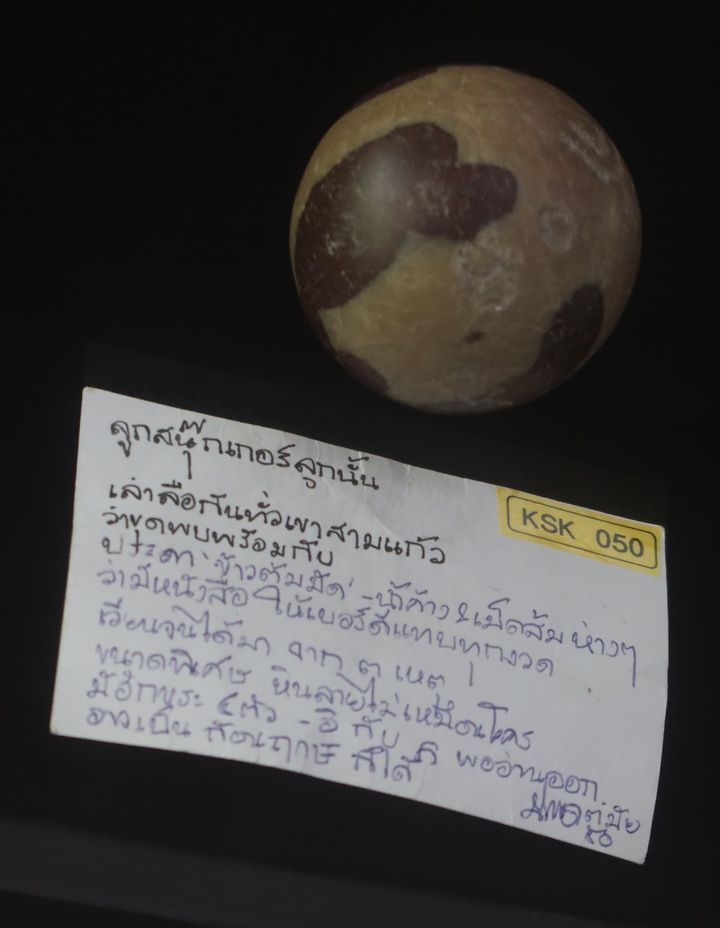 ลูกสนุ๊กเกอร์ลูกนั้น
KSK 050
เล่าลือกันทั่วเขาสามแก้ว
ว่าขุดพบพร้อมกับ
ประคำ ข้าวต้มมัด - น้ำค้าง & เม็ดส้ม ห่างๆ
ว่ามีหนังสือ ให้เบอร์ดีแทบทุกงวด
เวียนจนได้มา จาก ๓ เหตุ
ขนาดพิเศษ หินลายไม่เหมือนใคร
มีอักขระ ๔ ตัว - อิ กับ พออ่านออก
อาจเป็น ก้อนฤๅษี ก็ได้